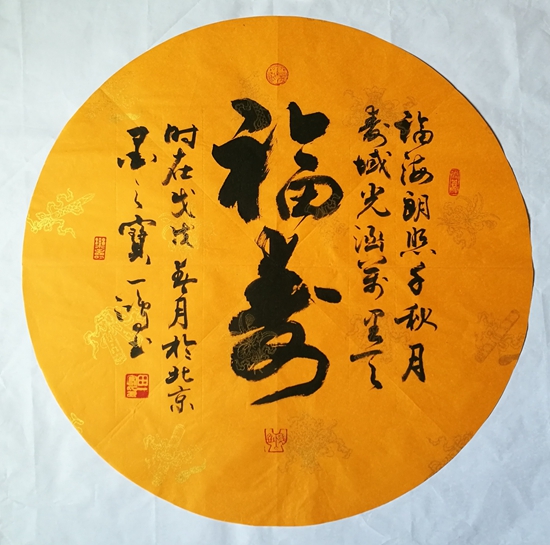 福海朗照千秋月
寿域光涵萬里天
福寿
时在戊戌春月於北京
墨之寶一鸿书